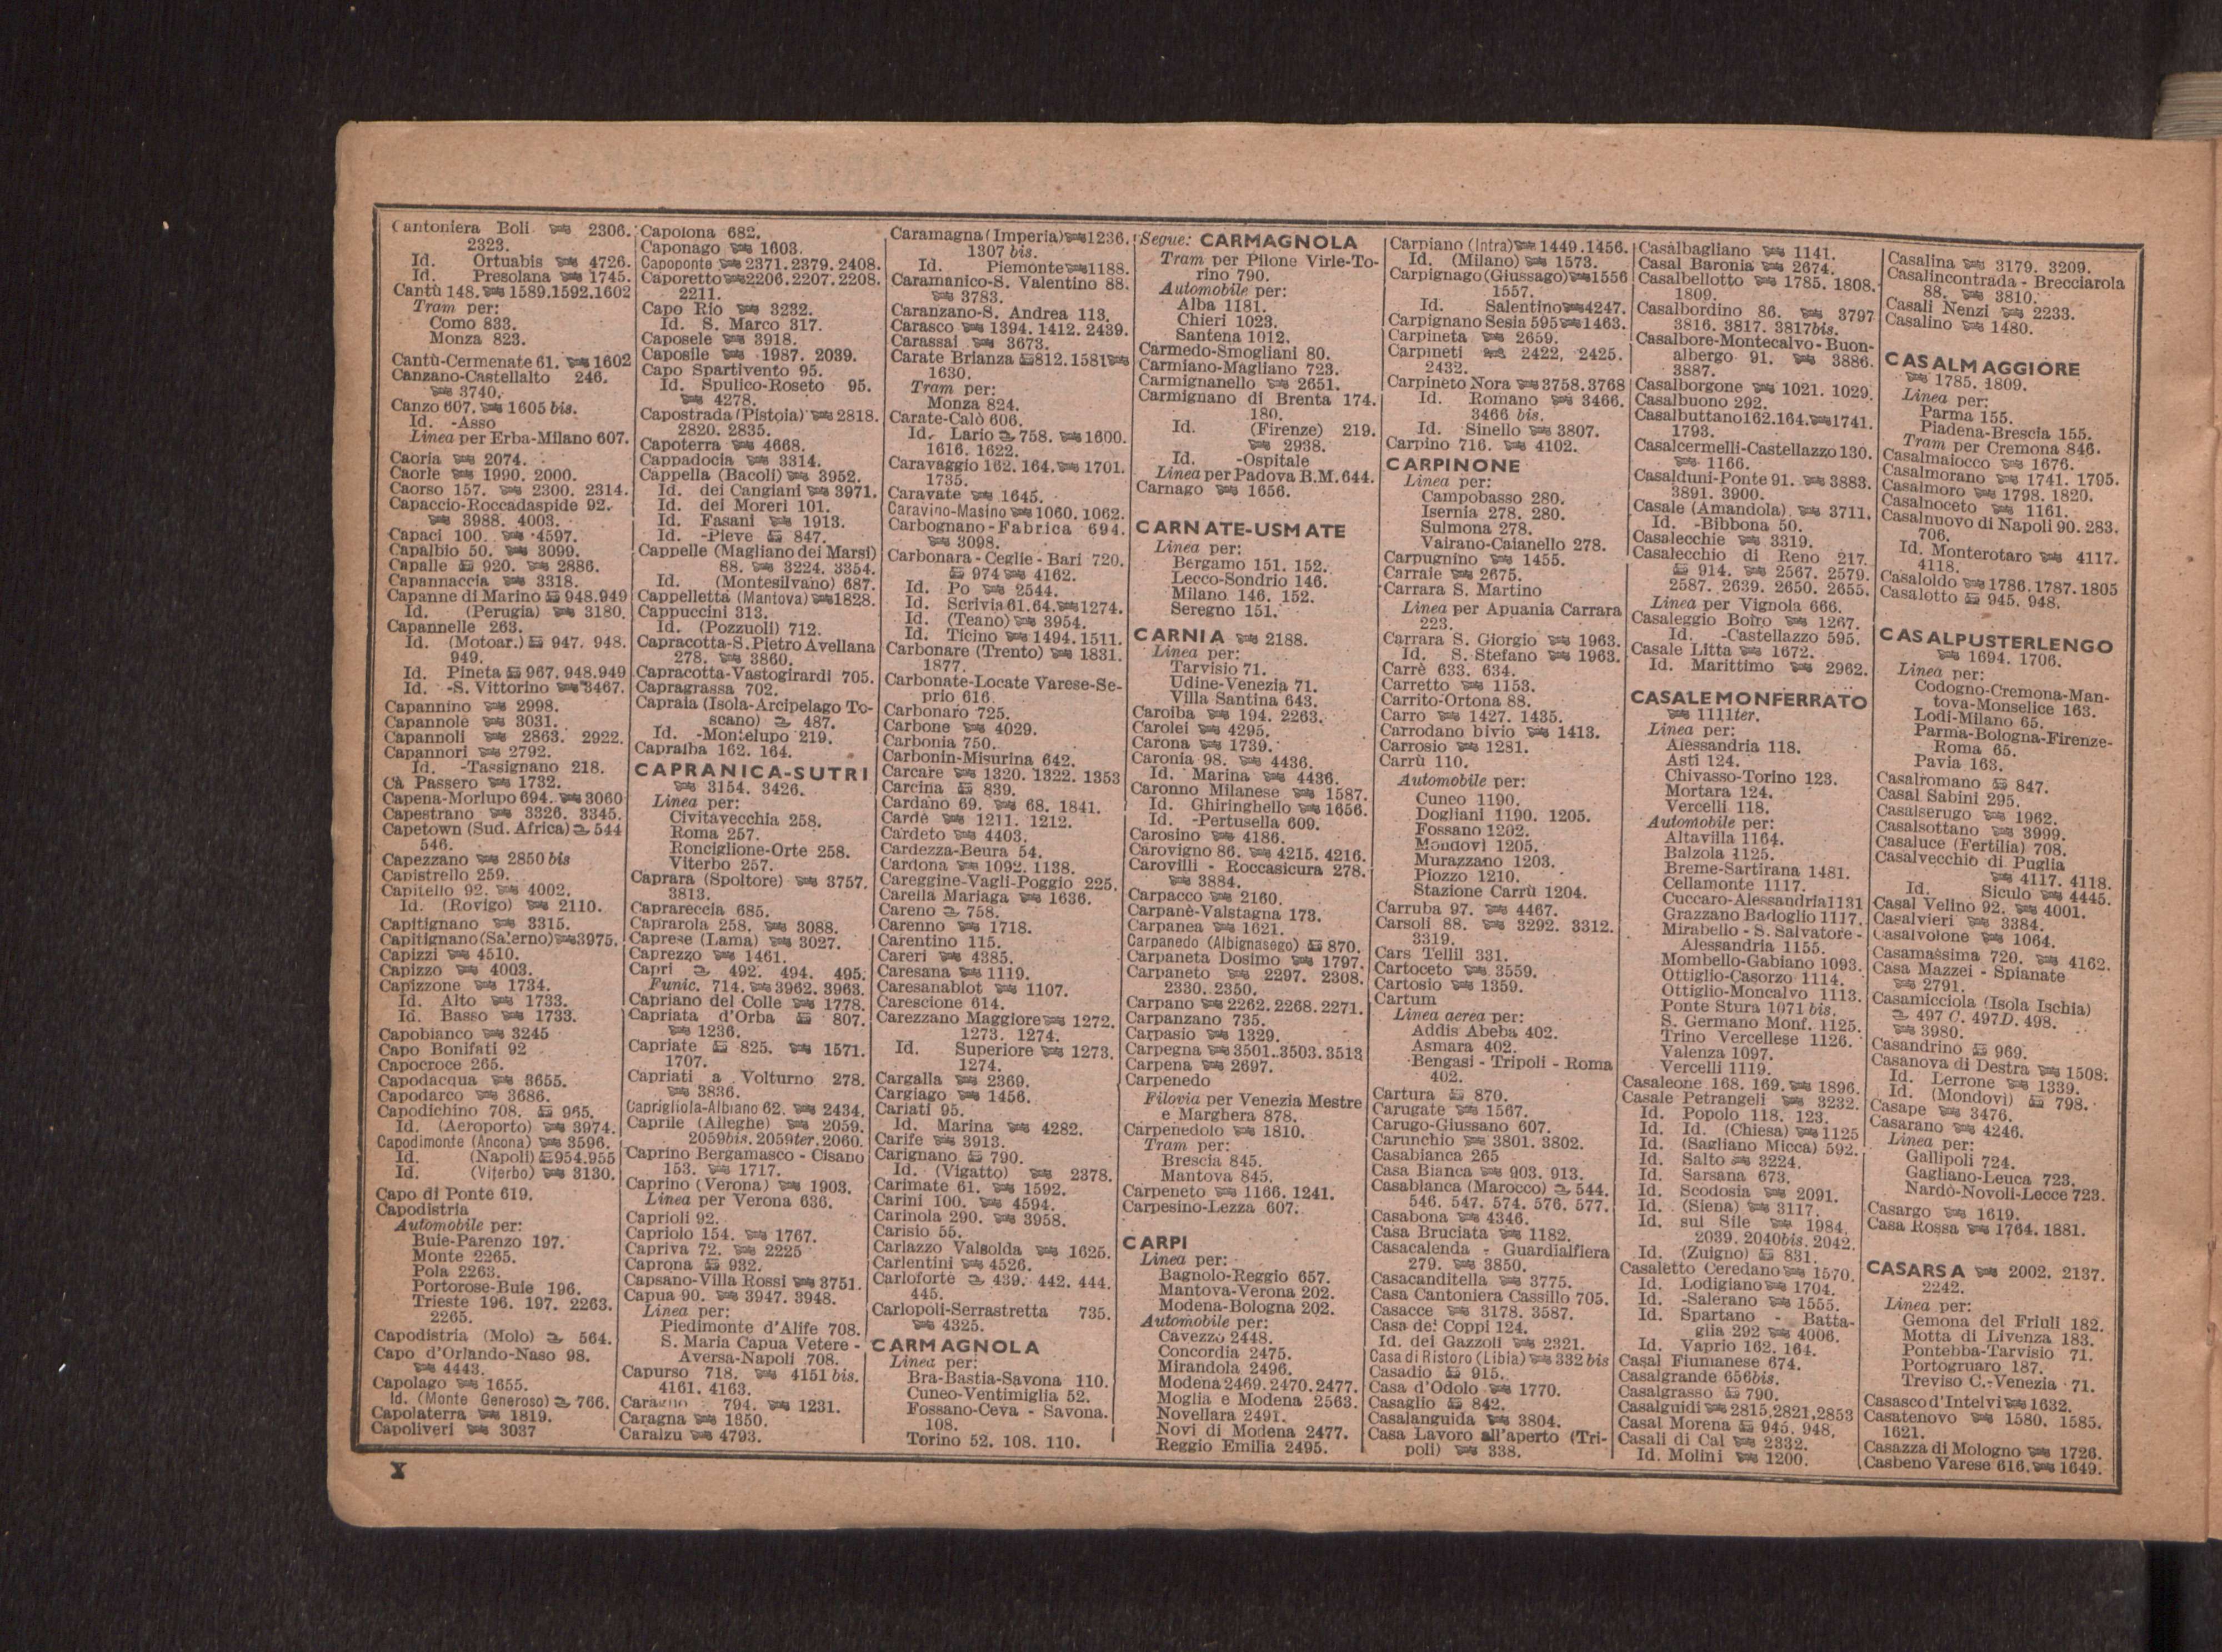 Cantoniera Boli 2306.
2323.
Id. Ortuabis 4726.
Id. Presolana 1745.
Cantù 148. 1589.1592.1602
Tram per:
Como 833.
Monza 823.
Cantù-Cermenate 61. 1602
Canzano-Castellalto 246.
3740.
Canzo 607. 1605 bis.
Id. -Asso
Linea per Erba-Milano 607.
Caoria 2074.
Caorle 1990. 2000.
Caorso 157. 2300. 2314.
Capaccio-Roccadaspide 92.
3988. 4003.
Capaci 100. 4597.
Capalbio 50. 3099.
Capalle 920. 2886.
Capannaccia 3318.
Capanne di Marino 948.949
Id. (Perugia) 3180.
Capannelle 263.
Id. (Motoar.) 947. 948.
949.
Id. Pineta 967. 948.949
Id. -S. Vittorino 3467.
Capannino 2998.
Capannole 3031.
Capannoli 2863. 2922.
Capannori 2792.
Id. -Tassignano 218.
Cà Passero 1732.
Capena-Morlupo 694. 3060
Capestrano 3326. 3345.
Capetown (Sud. Africa) 544
546.
Capezzano 2850 bis
Capistrello 259.
Capitello 92. 4002.
Id. (Rovigo) 2110.
Capitignano 3315.
Capitignano (Salerno) 3975.
Capizzi 4510.
Capizzo 4003.
Capizzone 1734.
Id. Alto 1733.
Id. Basso 1733.
Capobianco 3245
Capo Bonifati 92
Capocroce 265.
Capodacqua 3655.
Capodarco 3686.
Capodichino 708. 965.
Id. (Aeroporto) 3974.
Capodimonte (Ancona) 3596.
Id. (Napoli) 954.955
Id. (Viterbo) 3130.
Capo di Ponte 619.
Capodistria
Automobile per:
Buie-Parenzo 197.
Monte 2265.
Pola 2263.
Portorose-Buie 196.
Trieste 196. 197. 2263.
2265.
Capodistria (Molo) 564.
Capo d'Orlando-Naso 98.
4443.
Capolago 1655.
Id. (Monte Generoso) 766.
Capolaterra 1819.
Capoliveri 3037
Capolona 682.
Caponago 1603.
Capoponte 2371.2379.2408.
Caporetto 2206.2207.2208.
2211.
Capo Rio 3232.
Id. S. Marco 317.
Caposele 3918.
Caposile 1987. 2039.
Capo Spartivento 95.
Id. Spulico-Roseto 95.
4278.
Capostrada (Pistoia) 2818.
2820. 2835.
Capoterra 4668.
Cappadocia 3314.
Cappella (Bacoli) 3952.
Id. dei Cangiani 3971.
Id. dei Moreri 101.
Id. Fasani 1913.
Id. -Pieve 847.
Cappelle (Magliano dei Marsi)
88. 3224. 3354.
Id. (Montesilvano) 687.
Cappelletta (Mantova) 1828.
Cappuccini 313.
Id. (Pozzuoli) 712.
Capracotta-S. Pietro Avellana
278. 3860.
Capracotta-Vastogirardi 705.
Capragrassa 702.
Capraia (Isola-Arcipelago To-
scano) 487.
Id. -Montelupo 219.
Capralba 162. 164.
CAPRANICA-SUTRI
3154. 3426.
Linea per:
Civitavecchia 258.
Roma 257.
Ronciglione-Orte 258.
Viterbo 257.
Caprara (Spoltore) 3757.
3813.
Caprareccia 685.
Caprarola 258. 3088.
Caprese (Lama) 3027.
Caprezzo 1461.
Capri 492. 494. 495.
Funic. 714. 3962. 3963.
Capriano del Colle 1778.
Capriata d'Orba 807.
1236.
Capriate 825. 1571.
1707.
Capriati a Volturno 278.
3836.
Caprigliola-Albiano 62. 2434.
Caprile (Alleghe) 2059.
2059bis. 2059ter. 2060.
Caprino Bergamasco - Cisano
153. 1717.
Caprino (Verona) 1903.
Linea per Verona 636.
Caprioli 92.
Capriolo 154. 1767.
Capriva 72. 2225
Caprona 932.
Capsano-Villa Rossi 3751.
Capua 90. 3947. 3948.
Linea per:
Piedimonte d'Alife 708.
S. Maria Capua Vetere -
Aversa-Napoli 708.
Capurso 718. 4151 bis.
4161. 4163.
Caraglio 794. 1231.
Caragna 1350.
Caralzu 4793.
Caramagna (Imperia) 1236.
1307 bis.
Id. Piemonte 1188.
Caramanico-S. Valentino 88.
3783.
Caranzano-S. Andrea 113.
Carasco 1394. 1412. 2439.
Carassai 3673.
Carate Brianza 812.1581
1630.
Tram per:
Monza 824.
Carate-Calò 606.
Id. Lario 758. 1600.
1616. 1622.
Caravaggio 162. 164. 1701.
1735.
Caravate 1645.
Caravino-Masino 1060. 1062.
Carbognano-Fabrica 694.
3098.
Carbonara - Ceglie - Bari 720.
974 4162.
Id. Po 2544.
Id. Scrivia 61.64. 1274.
Id. (Teano) 3954.
Id. Ticino 1494. 1511.
Carbonare (Trento) 1831.
1877.
Carbonate-Locate Varese-Se-
prio 616.
Carbonaro 725.
Carbone 4029.
Carbonia 750.
Carbonin-Misurina 642.
Carcare 1320. 1322. 1353
Carcina 839.
Cardano 69. 68. 1841.
Cardè 1211. 1212.
Cardeto 4403.
Cardezza-Beura 54.
Cardona 1092. 1138.
Careggine-Vagli-Poggio 225.
Carella Mariaga 1636.
Careno 758.
Carenno 1718.
Carentino 115.
Careri 4385.
Caresana 1119.
Caresanablot 1107.
Carescione 614.
Carezzano Maggiore 1272.
1273. 1274.
Id. Superiore 1273.
1274.
Cargalla 2369.
Cargiago 1456.
Cariati 95.
Id. Marina 4282.
Carife 3913.
Carignano 790.
Id. (Vigatto) 2378.
Carimate 61. 1592.
Carini 100. 4594.
Carinola 290. 3958.
Carisio 55.
Carlazzo Valsolda 1625.
Carlentini 4526.
Carloforte 439. 442. 444.
445.
Carlopoli-Serrastretta 735.
4325.
CARMAGNOLA
Linea per:
Bra-Bastia-Savona 110.
Cuneo-Ventimiglia 52.
Fossano-Ceva - Savona.
108.
Torino 52. 108. 110.
Segue: CARMAGNOLA
Tram per Pilone Virle-To-
rino 790.
Automobile per:
Alba 1181.
Chieri 1023.
Santena 1012.
Carmedo-Smogliani 80.
Carmiano-Magliano 723.
Carmignanello 2651.
Carmignano di Brenta 174.
180.
Id. (Firenze) 219.
2938.
Id. -Ospitale
Linea per Padova B.M. 644.
Carnago 1656.
CARNATE-USMATE
Linea per:
Bergamo 151. 152.
Lecco-Sondrio 146.
Milano 146. 152.
Seregno 151.
CARNIA 2188.
Linea per:
Tarvisio 71.
Udine-Venezia 71.
Villa Santina 643.
Caroiba 194. 2263.
Carolei 4295.
Carona 1739.
Caronia 98. 4436.
Id. Marina 4436.
Caronno Milanese 1587.
Id. Ghiringhello 1656.
Id. -Pertusella 609.
Carosino 4186.
Carovigno 86. 4215. 4216.
Carovilli - Roccasicura 278.
3884.
Carpacco 2160.
Carpanè-Valstagna 173.
Carpanea 1621.
Carpanedo (Albignasego) 870.
Carpaneta Dosimo 1797.
Carpaneto 2297. 2308.
2330. 2350.
Carpano 2262. 2268. 2271.
Carpanzano 735.
Carpasio 1329.
Carpegna 3501.3503.3513
Carpena 2697.
Carpenedo
Filovia per Venezia Mestre
e Marghera 878.
Carpenedolo 1810.
Tram per:
Brescia 845.
Mantova 845.
Carpeneto 1166. 1241.
Carpesino-Lezza 607.
CARPI
Linea per:
Bagnolo-Reggio 657.
Mantova-Verona 202.
Modena-Bologna 202.
Automobile per:
Cavezzo 2448.
Concordia 2475.
Mirandola 2496.
Modena 2469. 2470. 2477.
Moglia e Modena 2563.
Novellara 2491.
Novi di Modena 2477.
Reggio Emilia 2495.
Carpiano (Intra) 1449.1456.
Id. (Milano) 1573.
Carpignago (Giussago) 1556
1557.
Id. Salentino 4247.
Carpignano Sesia 595 1463.
Carpineta 2659.
Carpineti 2422. 2425.
2432.
Carpineto Nora 3758.3768
Id. Romano 3466.
3466 bis.
Id. Sinello 3807.
Carpino 716. 4102.
CARPINONE
Linea per:
Campobasso 280.
Isernia 278. 280.
Sulmona 278.
Vairano-Caianello 278.
Carpugnino 1455.
Carraie 2675.
Carrara S. Martino
Linea per Apuania Carrara
223.
Carrara S. Giorgio 1963.
Id. S. Stefano 1963.
Carrè 633. 634.
Carretto 1153.
Carrito-Ortona 88.
Carro 1427. 1435.
Carrodano bivio 1413.
Carrosio 1281.
Carrù 110.
Automobile per:
Cuneo 1190.
Dogliani 1190. 1205.
Fossano 1202.
Mondovì 1205.
Murazzano 1203.
Piozzo 1210.
Stazione Carrù 1204.
Carruba 97. 4467.
Carsoli 88. 3292. 3312.
3319.
Cars Tellil 331.
Cartoceto 3559.
Cartosio 1359.
Cartum
Linea aerea per:
Addis Abeba 402.
Asmara 402.
Bengasi - Tripoli - Roma
402.
Cartura 870.
Carugate 1567.
Carugo-Giussano 607.
Carunchio 3801. 3802.
Casabianca 265
Casa Bianca 903. 913.
Casablanca (Marocco) 544.
546. 547. 574. 576. 577.
Casabona 4346.
Casa Bruciata 1182.
Casacalenda - Guardialfiera
279. 3850.
Casacanditella 3775.
Casa Cantoniera Cassillo 705.
Casacce 3178. 3587.
Casa dei Coppi 124.
Id. dei Gazzoli 2321.
Casa di Ristoro (Libia) 332 bis
Casadio 915.
Casa d'Odolo 1770.
Casaglio 842.
Casalanguida 3804.
Casa Lavoro all'aperto (Tri-
poli) 338.
Casalbagliano 1141.
Casal Baronia 2674.
Casalbellotto 1785. 1808.
1809.
Casalbordino 86. 3797
3816. 3817. 3817bis.
Casalbore-Montecalvo-Buon-
albergo 91. 3886.
3887.
Casalborgone 1021. 1029.
Casalbuono 292.
Casalbuttano 162.164. 1741.
1793.
Casalcermelli-Castellazzo 130.
1166.
Casalduni-Ponte 91. 3883.
3891. 3900.
Casale (Amandola) 3711.
Id. -Bibbona 50.
Casalecchie 3319.
Casalecchio di Reno 217.
914. 2567. 2579.
2587. 2639. 2650. 2655.
Linea per Vignola 666.
Casaleggio Boiro 1267.
Id. -Castellazzo 595.
Casale Litta 1672.
Id. Marittimo 2962.
CASALE MONFERRATO
1111ter.
Linea per:
Alessandria 118.
Asti 124.
Chivasso-Torino 123.
Mortara 124.
Vercelli 118.
Automobile per:
Altavilla 1164.
Balzola 1125.
Breme-Sartirana 1481.
Cellamonte 1117.
Cuccaro-Alessandria 1131
Grazzano Badoglio 1117.
Mirabello - S. Salvatore -
Alessandria 1155.
Mombello-Gabiano 1093.
Ottiglio-Casorzo 1114.
Ottiglio-Moncalvo 1113.
Ponte Stura 1071 bis.
S. Germano Monf. 1125.
Trino Vercellese 1126.
Valenza 1097.
Vercelli 1119.
Casaleone 168. 169. 1896.
Casale Petrangeli 3232.
Id. Popolo 118. 123.
Id. Id. (Chiesa) 1125
Id. (Sagliano Micca) 592.
Id. Salto 3224.
Id. Sarsana 673.
Id. Scodosia 2091.
Id. (Siena) 3117.
Id. sul Sile 1984.
2039. 2040bis. 2042.
Id. (Zuigno) 831.
Casaletto Ceredano 1570.
Id. Lodigiano 1704.
Id. -Salerano 1555.
Id. Spartano - Batta-
glia 292 4006.
Id. Vaprio 162. 164.
Casal Fiumanese 674.
Casalgrande 656bis.
Casalgrasso 790.
Casalguidi 2815.2821.2853
Casal Morena 945. 948.
Casali di Cal 2332.
Id. Molini 1200.
Casalina 3179. 3209.
Casalincontrada - Brecciarola
88. 3810.
Casali Nenzi 2233.
Casalino 1480.
CASALMAGGIORE
1785. 1809.
Linea per:
Parma 155.
Piadena-Brescia 155.
Tram per Cremona 846.
Casalmaiocco 1676.
Casalmorano 1741. 1795.
Casalmoro 1798. 1820.
Casalnoceto 1161.
Casalnuovo di Napoli 90. 283.
706.
Id. Monterotaro 4117.
4118.
Casaloldo 1786.1787.1805
Casalotto 945. 948.
CASALPUSTERLENGO
1694. 1706.
Linea per:
Codogno-Cremona-Man-
tova-Monselice 163.
Lodi-Milano 65.
Parma-Bologna-Firenze-
Roma 65.
Pavia 163.
Casalromano 847.
Casal Sabini 295.
Casalserugo 1962.
Casalsottano 3999.
Casaluce (Fertilia) 708.
Casalvecchio di Puglia
4117. 4118.
Id. Siculo 4445.
Casal Velino 92. 4001.
Casalvieri 3384.
Casalvolone 1064.
Casamassima 720. 4162.
Casa Mazzei - Spianate
2791.
Casamicciola (Isola Ischia)
497 C. 497D. 498.
3980.
Casandrino 969.
Casanova di Destra 1508.
Id. Lerrone 1339.
Id. (Mondovì) 798.
Casape 3476.
Casarano 4246.
Linea per:
Gallipoli 724.
Gagliano-Leuca 723.
Nardò-Novoli-Lecce 723.
Casargo 1619.
Casa Rossa 1764. 1881.
CASARSA 2002. 2137.
2242.
Linea per:
Gemona del Friuli 182.
Motta di Livenza 183.
Pontebba-Tarvisio 71.
Portogruaro 187.
Treviso C.-Venezia 71.
Casasco d'Intelvi 1632.
Casatenovo 1580. 1585.
1621.
Casazza di Mologno 1726.
Casbeno Varese 616. 1649.
X